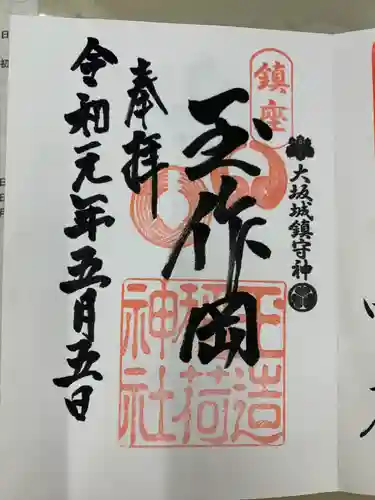 鎮座
大坂城鎮守神
奉拝
玉作岡
玉造
稲荷
神社
令和元年五月五日